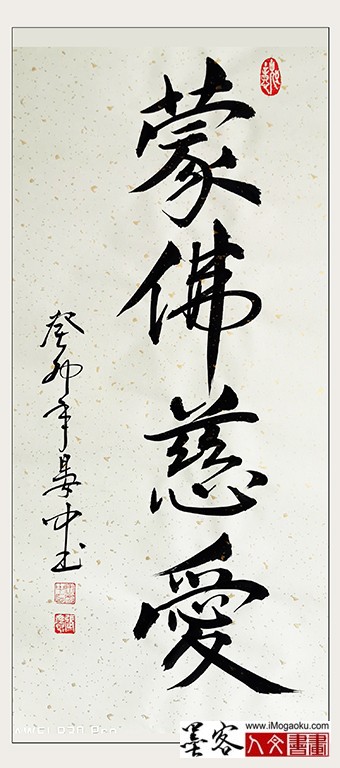 蒙佛慈愛
癸卯年晏中书
www.iMogaoku.com
墨客人文書畫